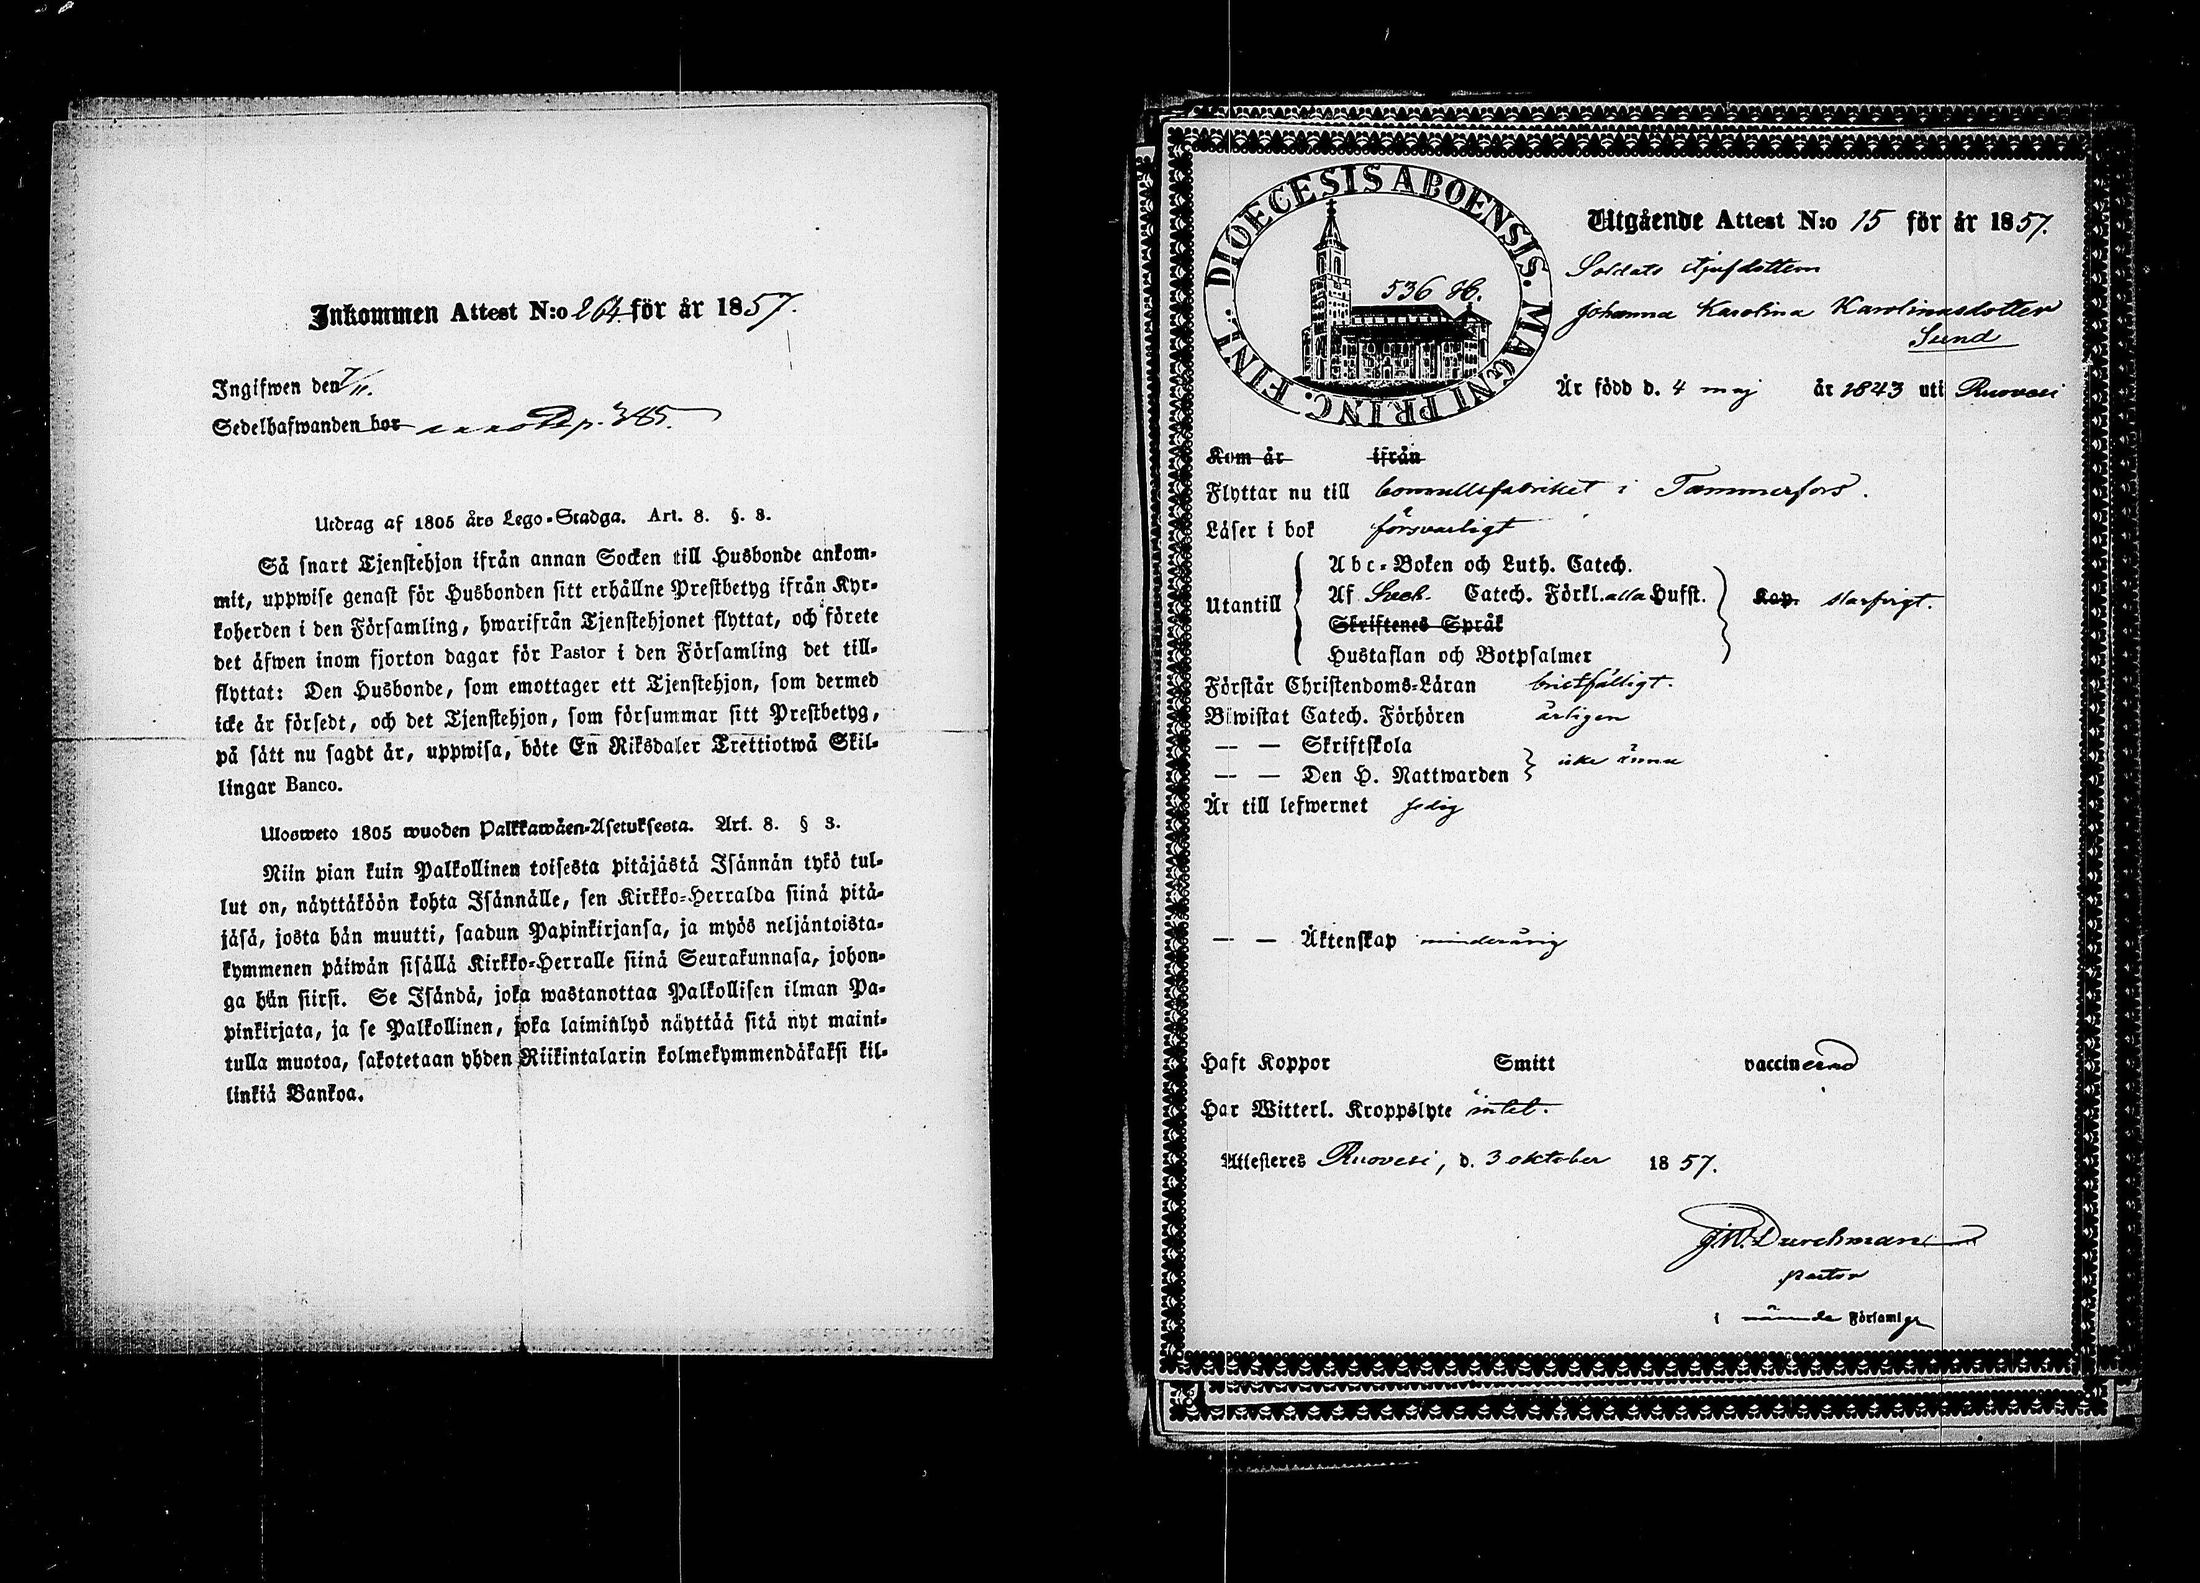 Inkommen Attest N:o 264. för år 1857.
Ingifwen den 7/11.
Sedelhafwanden bor p. 385.
Utdrag af 1805 års Lego-Stadga. Art. 8. §. 3.
Så snart Tjenstehjon ifrån annan Socken till Husbonde ankom-
mit, uppwise genast för Husbonden sitt erhållne Prestbetyg ifrån Kyr-
koherden i den Församling, hwarifrån Tjenstehjonet flyttat, och förete
det äfwen inom fjorton dagar för Pastor i den Församling det till-
flyttat: Den Husbonde, som emottager ett Tjenstehjon, som dermed
icke är försedt, och det Tjenstehjon, som försummar sitt Prestbetyg,
på sätt nu sagdt är, uppwisa, böte En Riksdaler Trettiotwå Skil-
lingar Banco.
Ulosweto 1805 wuoden Palkkawäen-Asetuksesta. Art. 8. § 3.
Niin pian kuin Palkollinen toisesta pitäjästä Isännän tykö tul-
lut on, näyttäköön kohta Isännälle, sen Kirkko-Herralda siinä pitä-
jäsä, josta hän muutti, saadun Papinkirjansa, ja myös neljäntoista-
kymmenen päiwän sisällä Kirkko-Herralle siinä Seurakunnasa, johon-
ga hän siirsi. Se Isändä, joka wastanottaa Palkollisen ilman Pa-
pinkirjata, ja se Palkollinen, joka laiminlyö näyttää sitä nyt maini-
tulla muotoa, sakotetaan yhden Riikintalarin kolmekymmendäkaksi kil-
linkiä Bankoa.
DIOECESIS ABOENSIS. MAGNI PRINC. FINL.
536
Utgående Attest N:o 15 för år 1857.
Soldats
Johanna Karolina Karolinasdotter
Sund
Är född d. 4 maj år 1843 uti Ruovesi
Kom år ifrån
Flyttar nu till bomullsfabriket i Tammerfors.
Läser i bok försvarligt
Utantill
Abc-Boken och Luth. Catech.
Af Sveb. Catech. Förkl. alla Husst.
Skriftenes Språk
Hustaflan och Botpsalmer
Kap.
Förstår Christendoms-Läran bristfälligt.
Biwistat Catech. Förhören årligen
— — Skriftskola
— — Den H. Nattwarden
icke ännu
Är till lefwernet sedig
— — Äktenskap minderårig
Haft Koppor Smitt vaccinerad
Har Witterl. Kroppslyte intet.
Attesteres Ruovesi, d. 3 oktober 1857.
J.W. Durchman
pastor
i nämnde Församlg